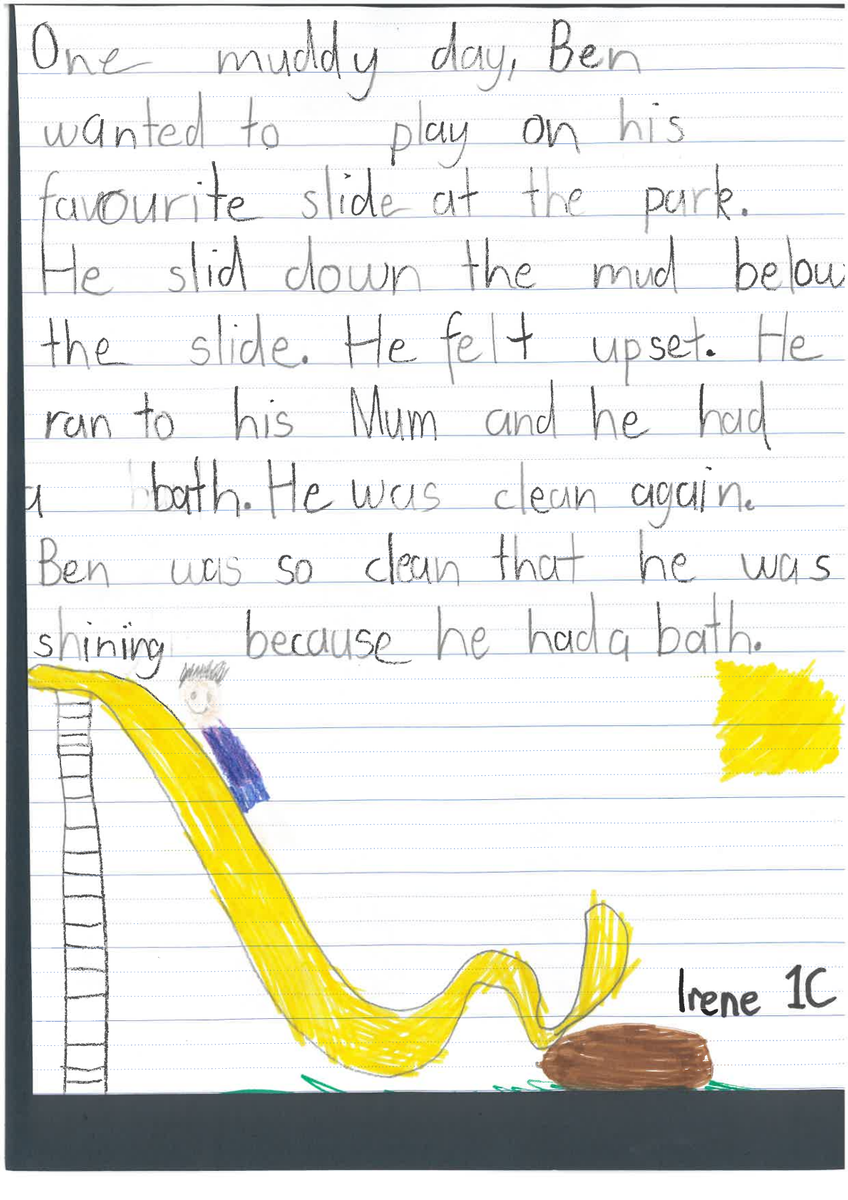 One muddy day, Ben
wanted to play on his
favourite slide at the park.
He slid down the mud below
the slide. He felt upset. He
ran to his Mum and he had
a bath. He was clean again.
Ben was so clean that he was
shining because he had a bath.
Irene 1C